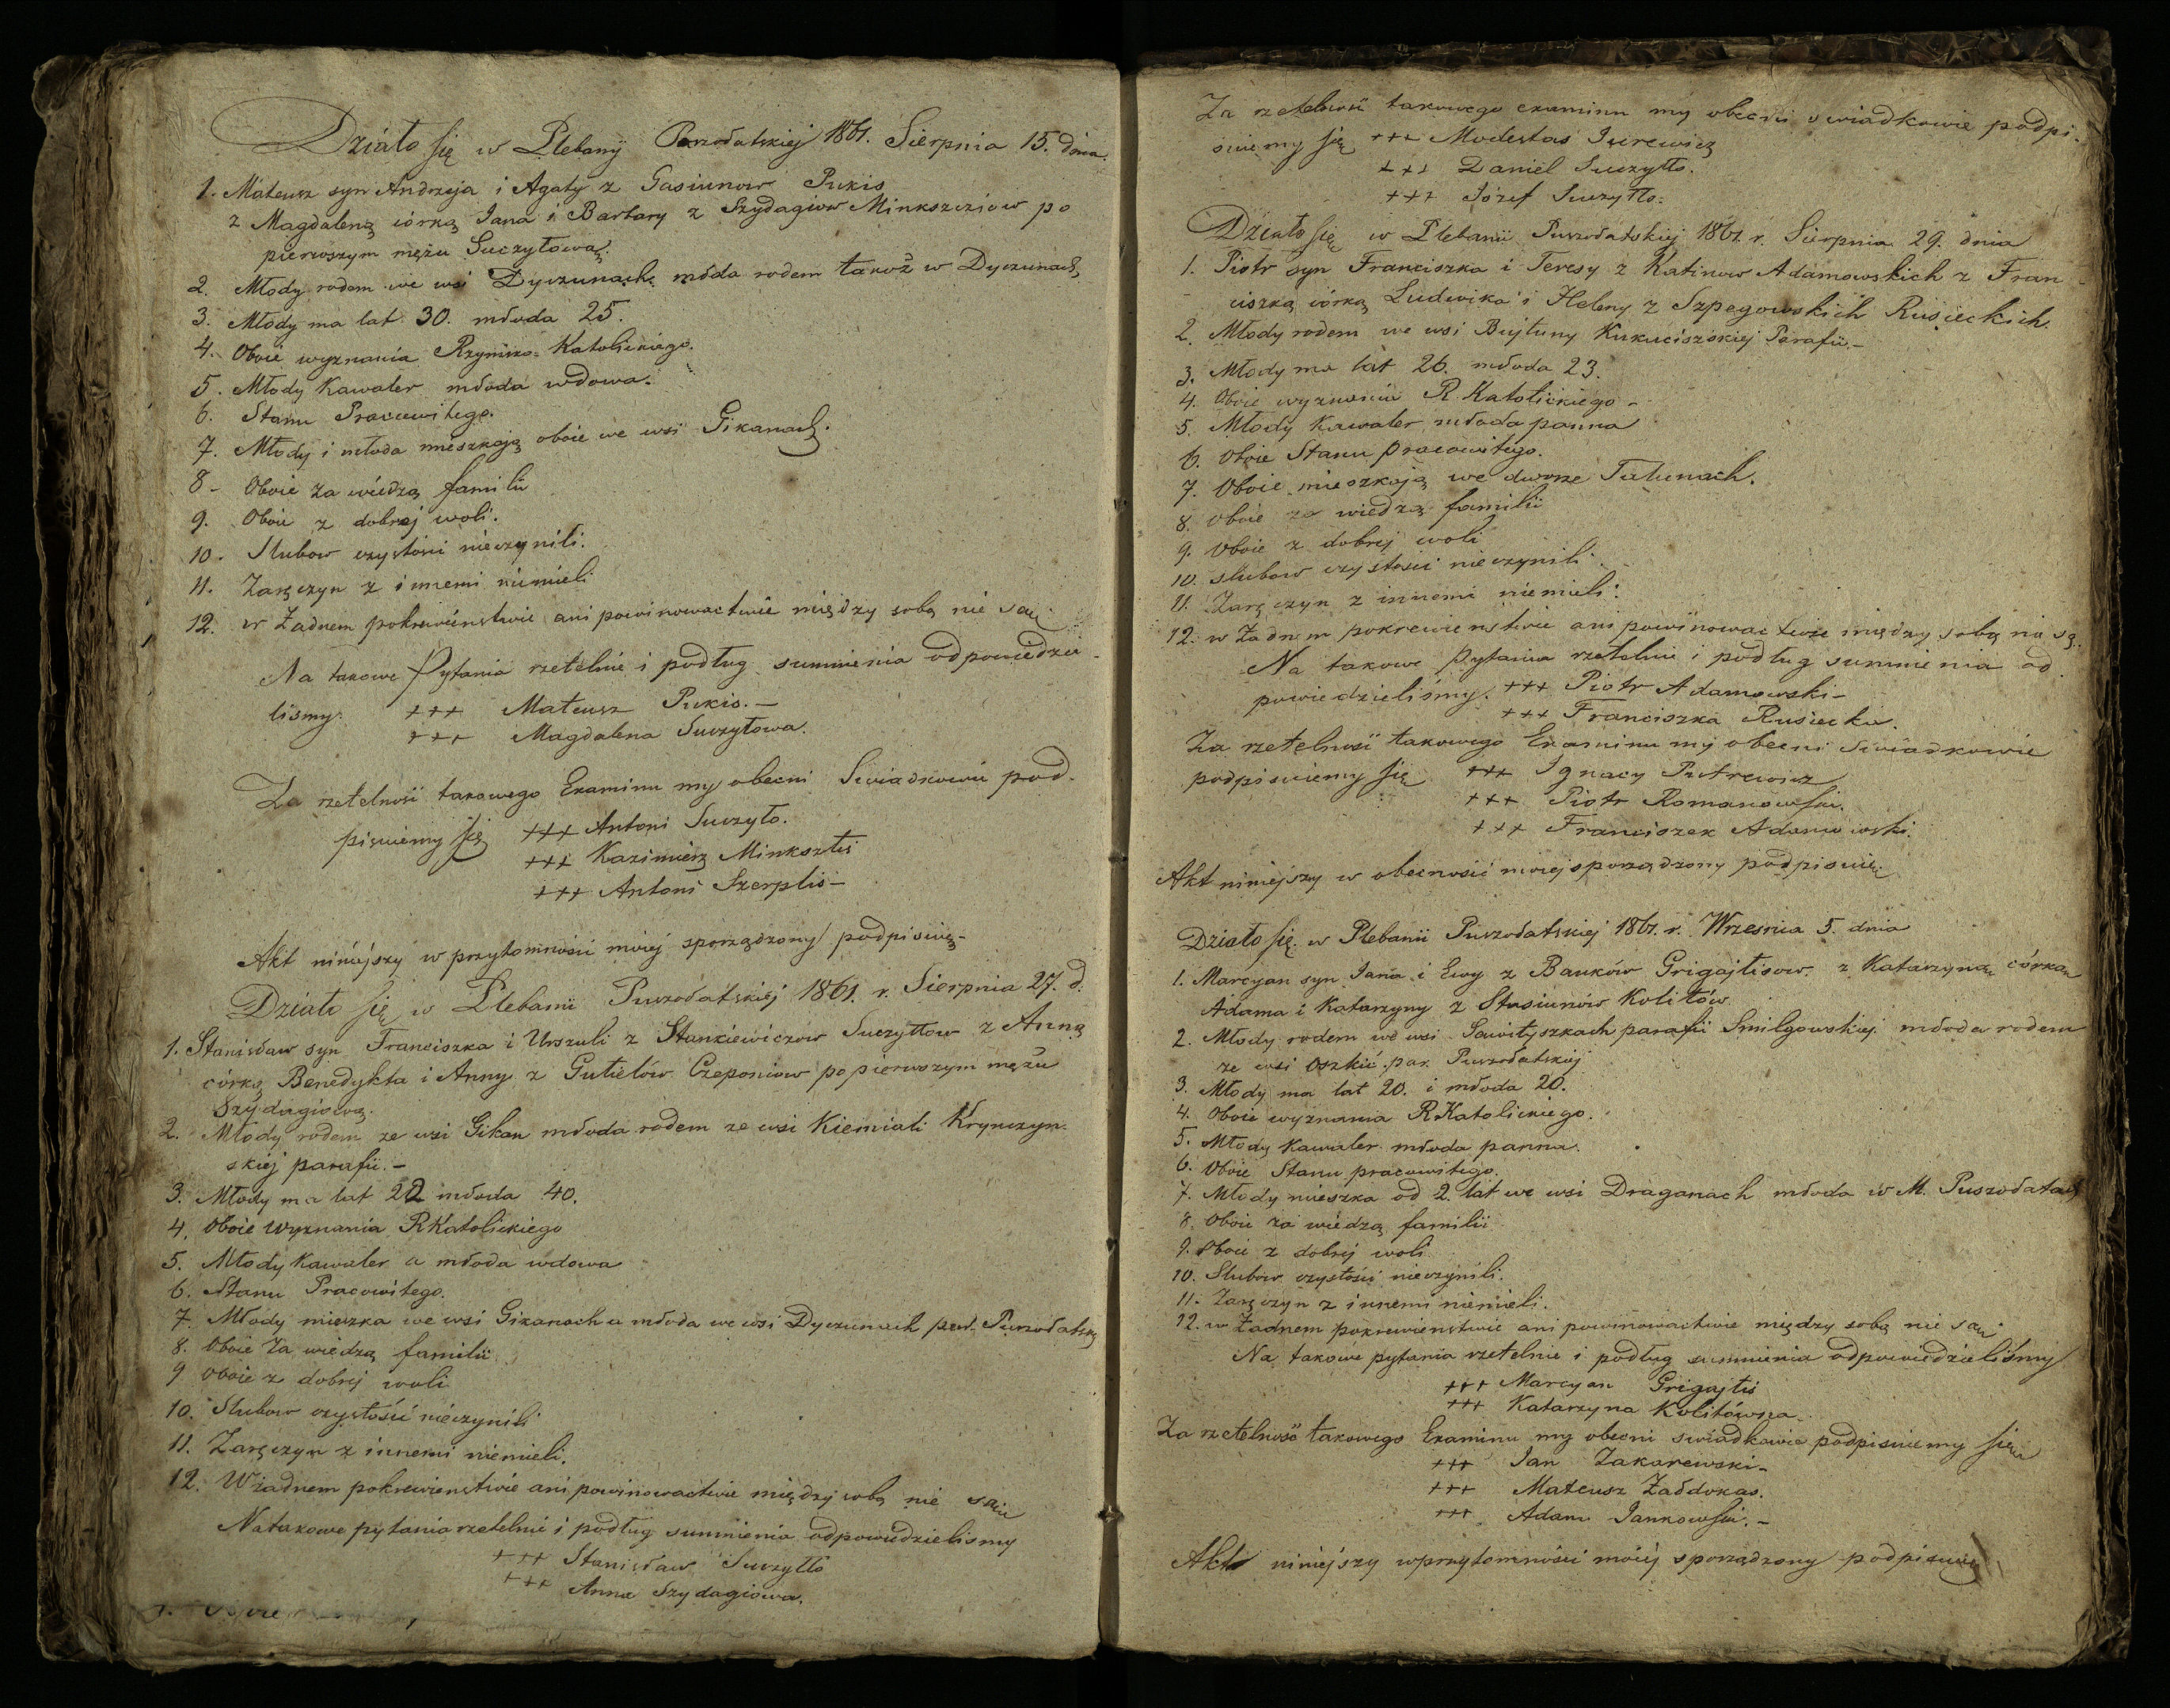 Działo się w Plebanij Puszołatskiej 1861. Sierpnia 15. dnia.
1. Mateusz syn Andrzeja i Agaty z Gasiunow Pukis
z Magdaleną córką Jana i Barbary z Szydagiow Minkszciow po
pierwszym mężu Suczyłową.
2. Młody rodem we wsi Dyczunach, młoda rodem takoż w Dyczunach,
3. Młody ma lat 30. młoda 25.
4. Oboie wyznania Rzymsko-Katolickiego.
5. Młody Kawaler młoda wdowa.
6. Stanu Pracowitego.
7. Młody i młoda mieszkają oboie we wsi Gikanach.
8- Oboie za wiedzą familii
9. Oboie z dobrej woli.
10. Slubow czystosci nieczynili.
11. Zaręczyn z innemi niemieli
12. w Żadnem pokrewienstwie ani powinowactwie między sobą nie są.
Na takowe Pytania rzetelnie i podług sumnienia odpowiedzie
lismy. +++ Mateusz Pukis.-
+++ Magdalena Suczyłowa.
Za rzetelność takowego Examinu my obecni Swiadkowie pod-
pisuiemy się +++ Antoni Suczyło.
+++ Kazimierz Minksztis
+++ Antoni Szerplis-
Akt niniejszy w przytomności moiej sporządzony podpisuię-
Działo się w Plebanii Puszołatskiej 1861. r. Sierpnia 27. d.
1. Stanisław syn Franciszka i Urszuli z Stankiewiczow Suczyłłow z Anną
córką Benedykta i Anny z Gutielów Czeponiow po pierwszym mężu
Szydagiową.
2. Młody rodem ze wsi Gikan młoda rodem ze wsi Kiemiali Krynczyn-
skiej parafii.-
3. Młody ma lat 22 młoda 40.
4. Oboie Wyznania RKatolickiego
5. Młody Kawaler a młoda wdowa
6. Stanu Pracowitego.
7. Młody mieszka we wsi Gikanach a młoda we wsi Dyczunach Puszołatskiej
8. Oboie Za wiedzą familii
9 Oboie z dobrej woli
10. Slubow czystości nieczynili
11. Zaręczyn z innemi niemieli.
12. W żadnem pokrewienstwie ani powinowactwie między sobą nie są
Na takowe pytania rzetelnie i podług sumnienia odpowiedzielismy
+++ Stanisław Suczyłło
+++ Anna Szydagiowa.
Za rzetelność takowego examinu my obecni swiadkowie podpi-
suiemy się +++ Modestas Jurewicz
+++ Daniel Suczyłło.
+++ Józef Suczyłło.
Działo się w Plebanii Puszołatskiej 1861. r. Sierpnia 29. dnia
1. Piotr syn Franciszka i Teresy z Katinow Adamowskich z Fran
ciszką córką Ludwika i Heleny z Szpegowskich Rusieckich.
2. Młody rodem we wsi Bujtuny Kukuciszskiej Parafii.-
3. Młody ma lat 26. młoda 23.
4. Oboie wyznania R. Katolickiego-
5. Młody Kawaler młoda panna
6. Oboie Stanu pracowitego.
7. Oboie mieszkają we dworze Talunach.
8. Oboie za wiedzą familii
9. Oboie z dobrej woli
10. slubow czystosci nieczynili.
11. Zaręczyn z innemi niemieli.
12. w Żadnem pokrewienstwie ani powinowactwie między sobą nie są.
Na takowe Pytania rzetelnie i podług sumnienia od
powiedzieliśmy. +++ Piotr Adamowski-
+++ Franciszka Rusiecka.
Za rzetelność takowego Examinu my obecni Swiadkowie
podpisuiemy się +++ Ignacy Putrewicz
+++ Piotr Romanowski.
+++ Franciszek Adamowski.
Akt niniejszy w obecnosci moiej sporządzony podpisuię
Działo się w Plebanii Puszołatskiej 1861. r. Wrzesnia 5. dnia
1. Marcyan syn Jana i Ewy z Bauków Grigajtisow. z Katarzyną córką
Adama i Katarzyny z Stasiunów Kolitów
2. Młody rodem we wsi Sawityszkach parafii Smilgowskiej młoda rodem
ze wsi Oszkić par. Puszołatskiej
3. Młody ma lat 20. i młoda 20.
4. Oboie wyznania RKatolickiego.
5. Młody Kawaler młoda panna.
6. Oboie Stanu pracowitego.
7. Młody mieszka od 2. lat we wsi Draganach młoda w M. Puszołatach
8. Oboie za wiedzą familii
9. Oboie z dobrej woli
10. Slubow czystości nieczynili.
11. Zaręczyn z innemi niemieli.
12. w Żadnem pokrewienstwie ani powinowactwie między sobą nie są
Na takowe pytania rzetelnie i podług sumnienia odpowiedzieliśmy
+++ Marcyan Grigajtis
+++ Katarzyna Kolitówna.
Za rzetelność takowego Examinu my obecni swiadkowie podpisuiemy się
+++ Jan Zakarewski-
+++ Mateusz Żałdokas.
+++ Adam Jankowski.-
Akt niniejszy w przytomności moiéj sporządzony podpisuię